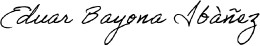 Eduar Bayona Ibàñez